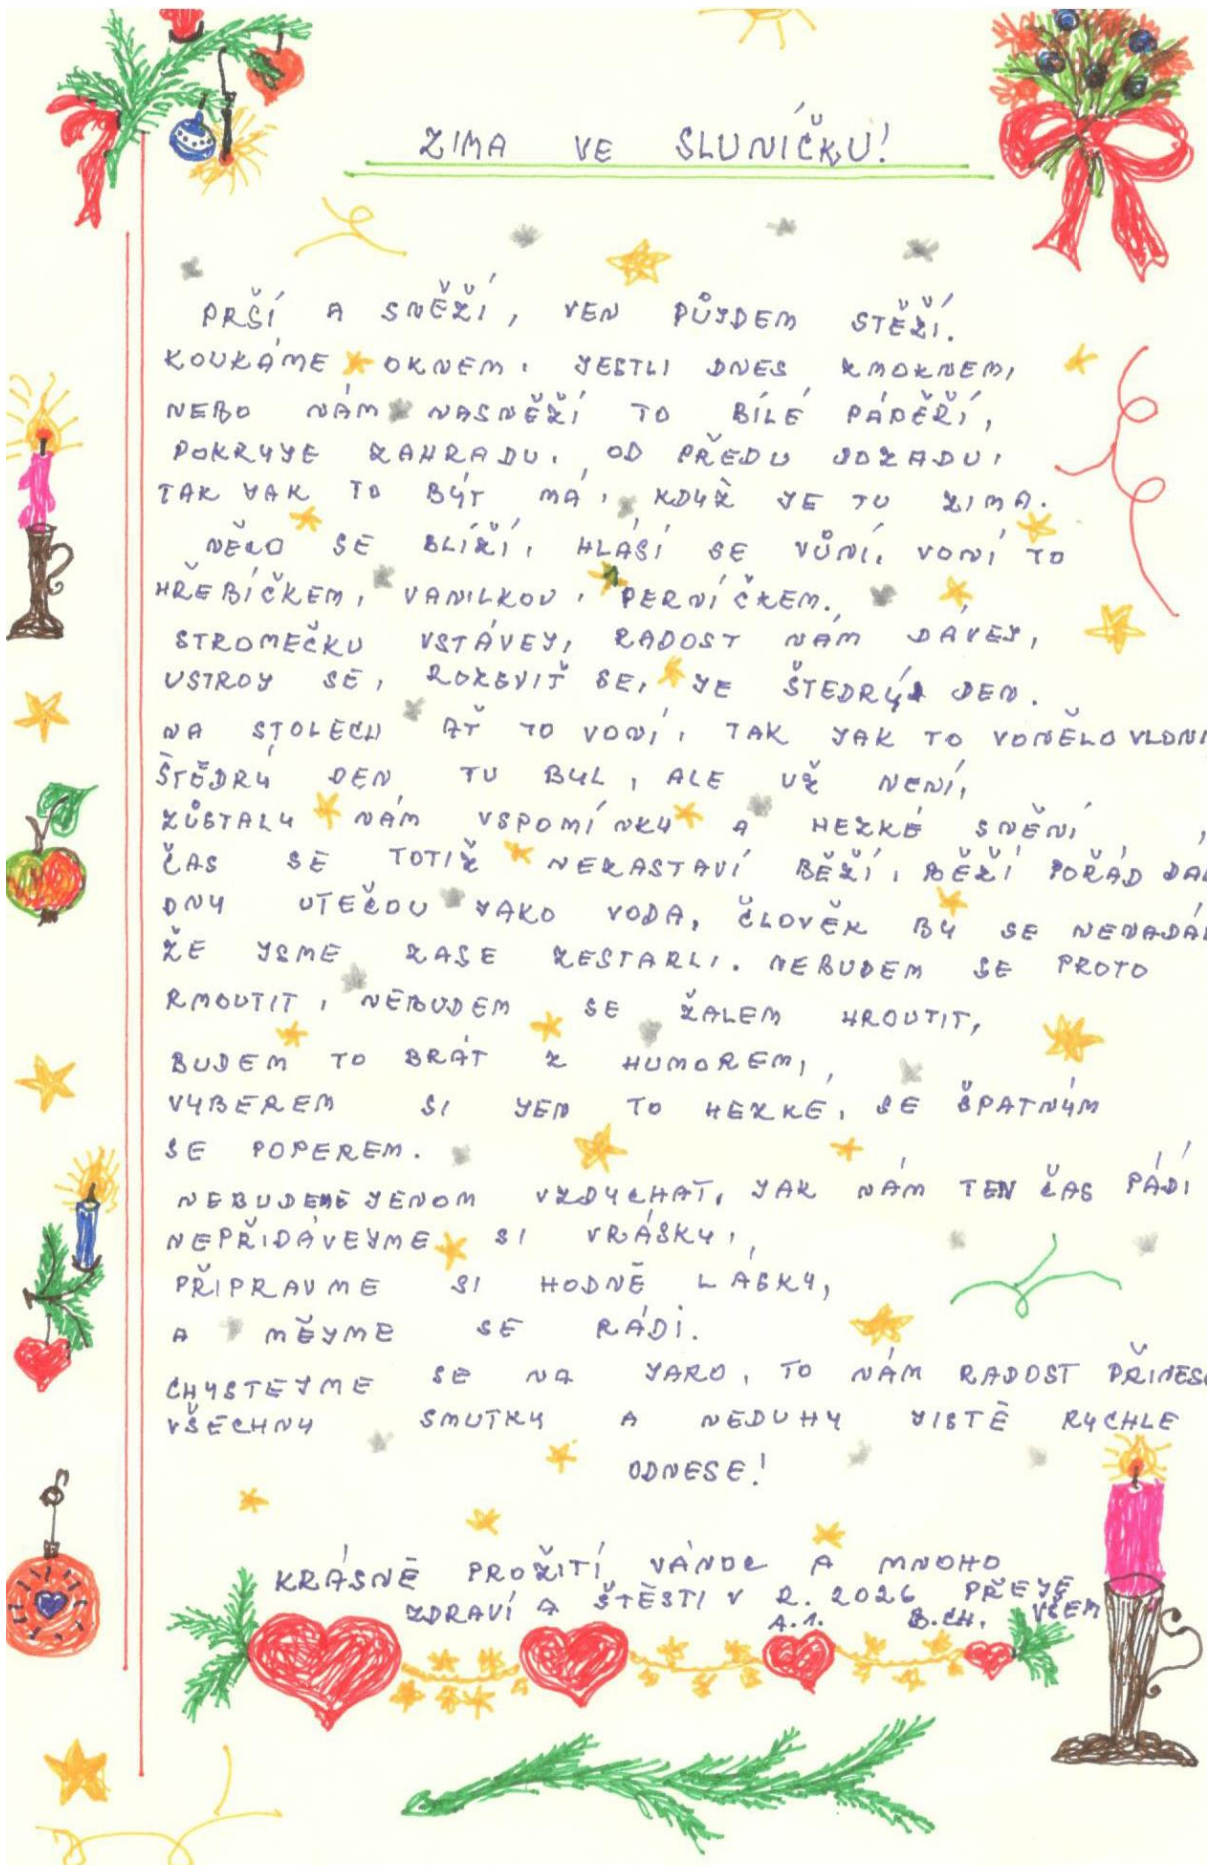 ZIMA VE SLUNÍČKU!
PRŠÍ A SNĚŽÍ, VEN PŮJDEM STĚŽÍ.
KOUKÁME OKNEM, JESTLI DNES ZMOKNEM,
NEBO NÁM NASNĚŽÍ TO BÍLÉ PÁPĚŘÍ,
POKRYJE ZAHRADU, OD PŘEDU DOZADU,
TAK JAK TO BÝT MÁ, KDYŽ JE TU ZIMA.
NĚCO SE BLÍŽÍ, HLÁSÍ SE VŮNÍ, VONÍ TO
HŘEBÍČKEM, VANILKOU, PERNÍČKEM.
STROMEČKU VSTÁVEJ, RADOST NÁM DÁVEJ,
USTROJ SE, ROZSVIŤ SE, JE ŠTEDRÝ DEN.
NA STOLECH AŤ TO VONÍ, TAK JAK TO VONĚLO VLONI,
ŠTĚDRÝ DEN TU BYL, ALE UŽ NENÍ,
ZŮSTALY NÁM VSPOMÍNKY A HEZKÉ SNĚNÍ,
ČAS SE TOTIŽ NEZASTAVÍ BĚŽÍ, BĚŽÍ POŘÁD
DNY UTEČOU JAKO VODA, ČLOVĚK BY SE
ŽE JSME ZASE ZESTARLI. NEBUDEM SE PROTO
RMOUTIT, NEBUDEM SE ŽALEM HROUTIT,
BUDEM TO BRÁT Z HUMOREM,
VYBEREM SI JEN TO HEZKÉ, SE ŠPATNÝM
SE POPEREM.
NEBUDEME JENOM VZDYCHAT, JAK NÁM TEN ČAS PÁDÍ
NEPŘIDÁVEJME SI VRÁSKY,
PŘIPRAVME SI HODNĚ LÁSKY,
A MĚJME SE RÁDI.
CHYSTEJME SE NA JARO, TO NÁM RADOST
VŠECHNY SMUTKY A NEDUHY JISTĚ RYCHLE
ODNESE!
KRÁSNÉ PROŽITÍ VÁNOC A MNOHO
ZDRAVÍ A ŠTĚSTI V R. 2026 PŘEJE VŠEM
A.1. B.CH.